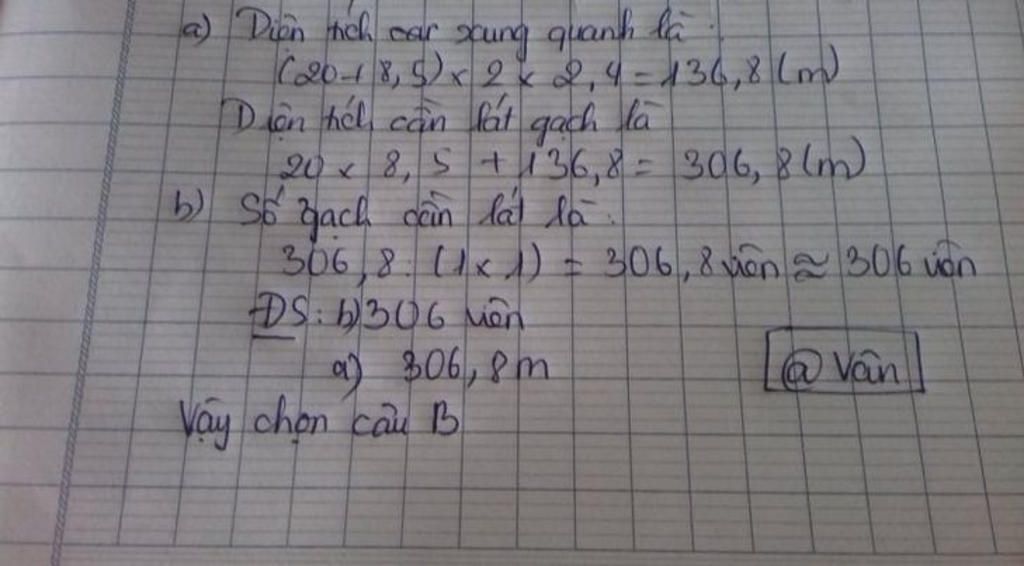 a) Diện tích các xung quanh là:
(20+8,5)×2×2,4=136,8(m)
Diện tích cần lát gạch là
20×8,5+136,8=306,8(m)
b) Số gạch cần lát là:
306,8:(1×1)=306,8 viên≈306 viên
ĐS: b)306 viên
a) 306,8m
@ Vân
Vậy chọn câu B